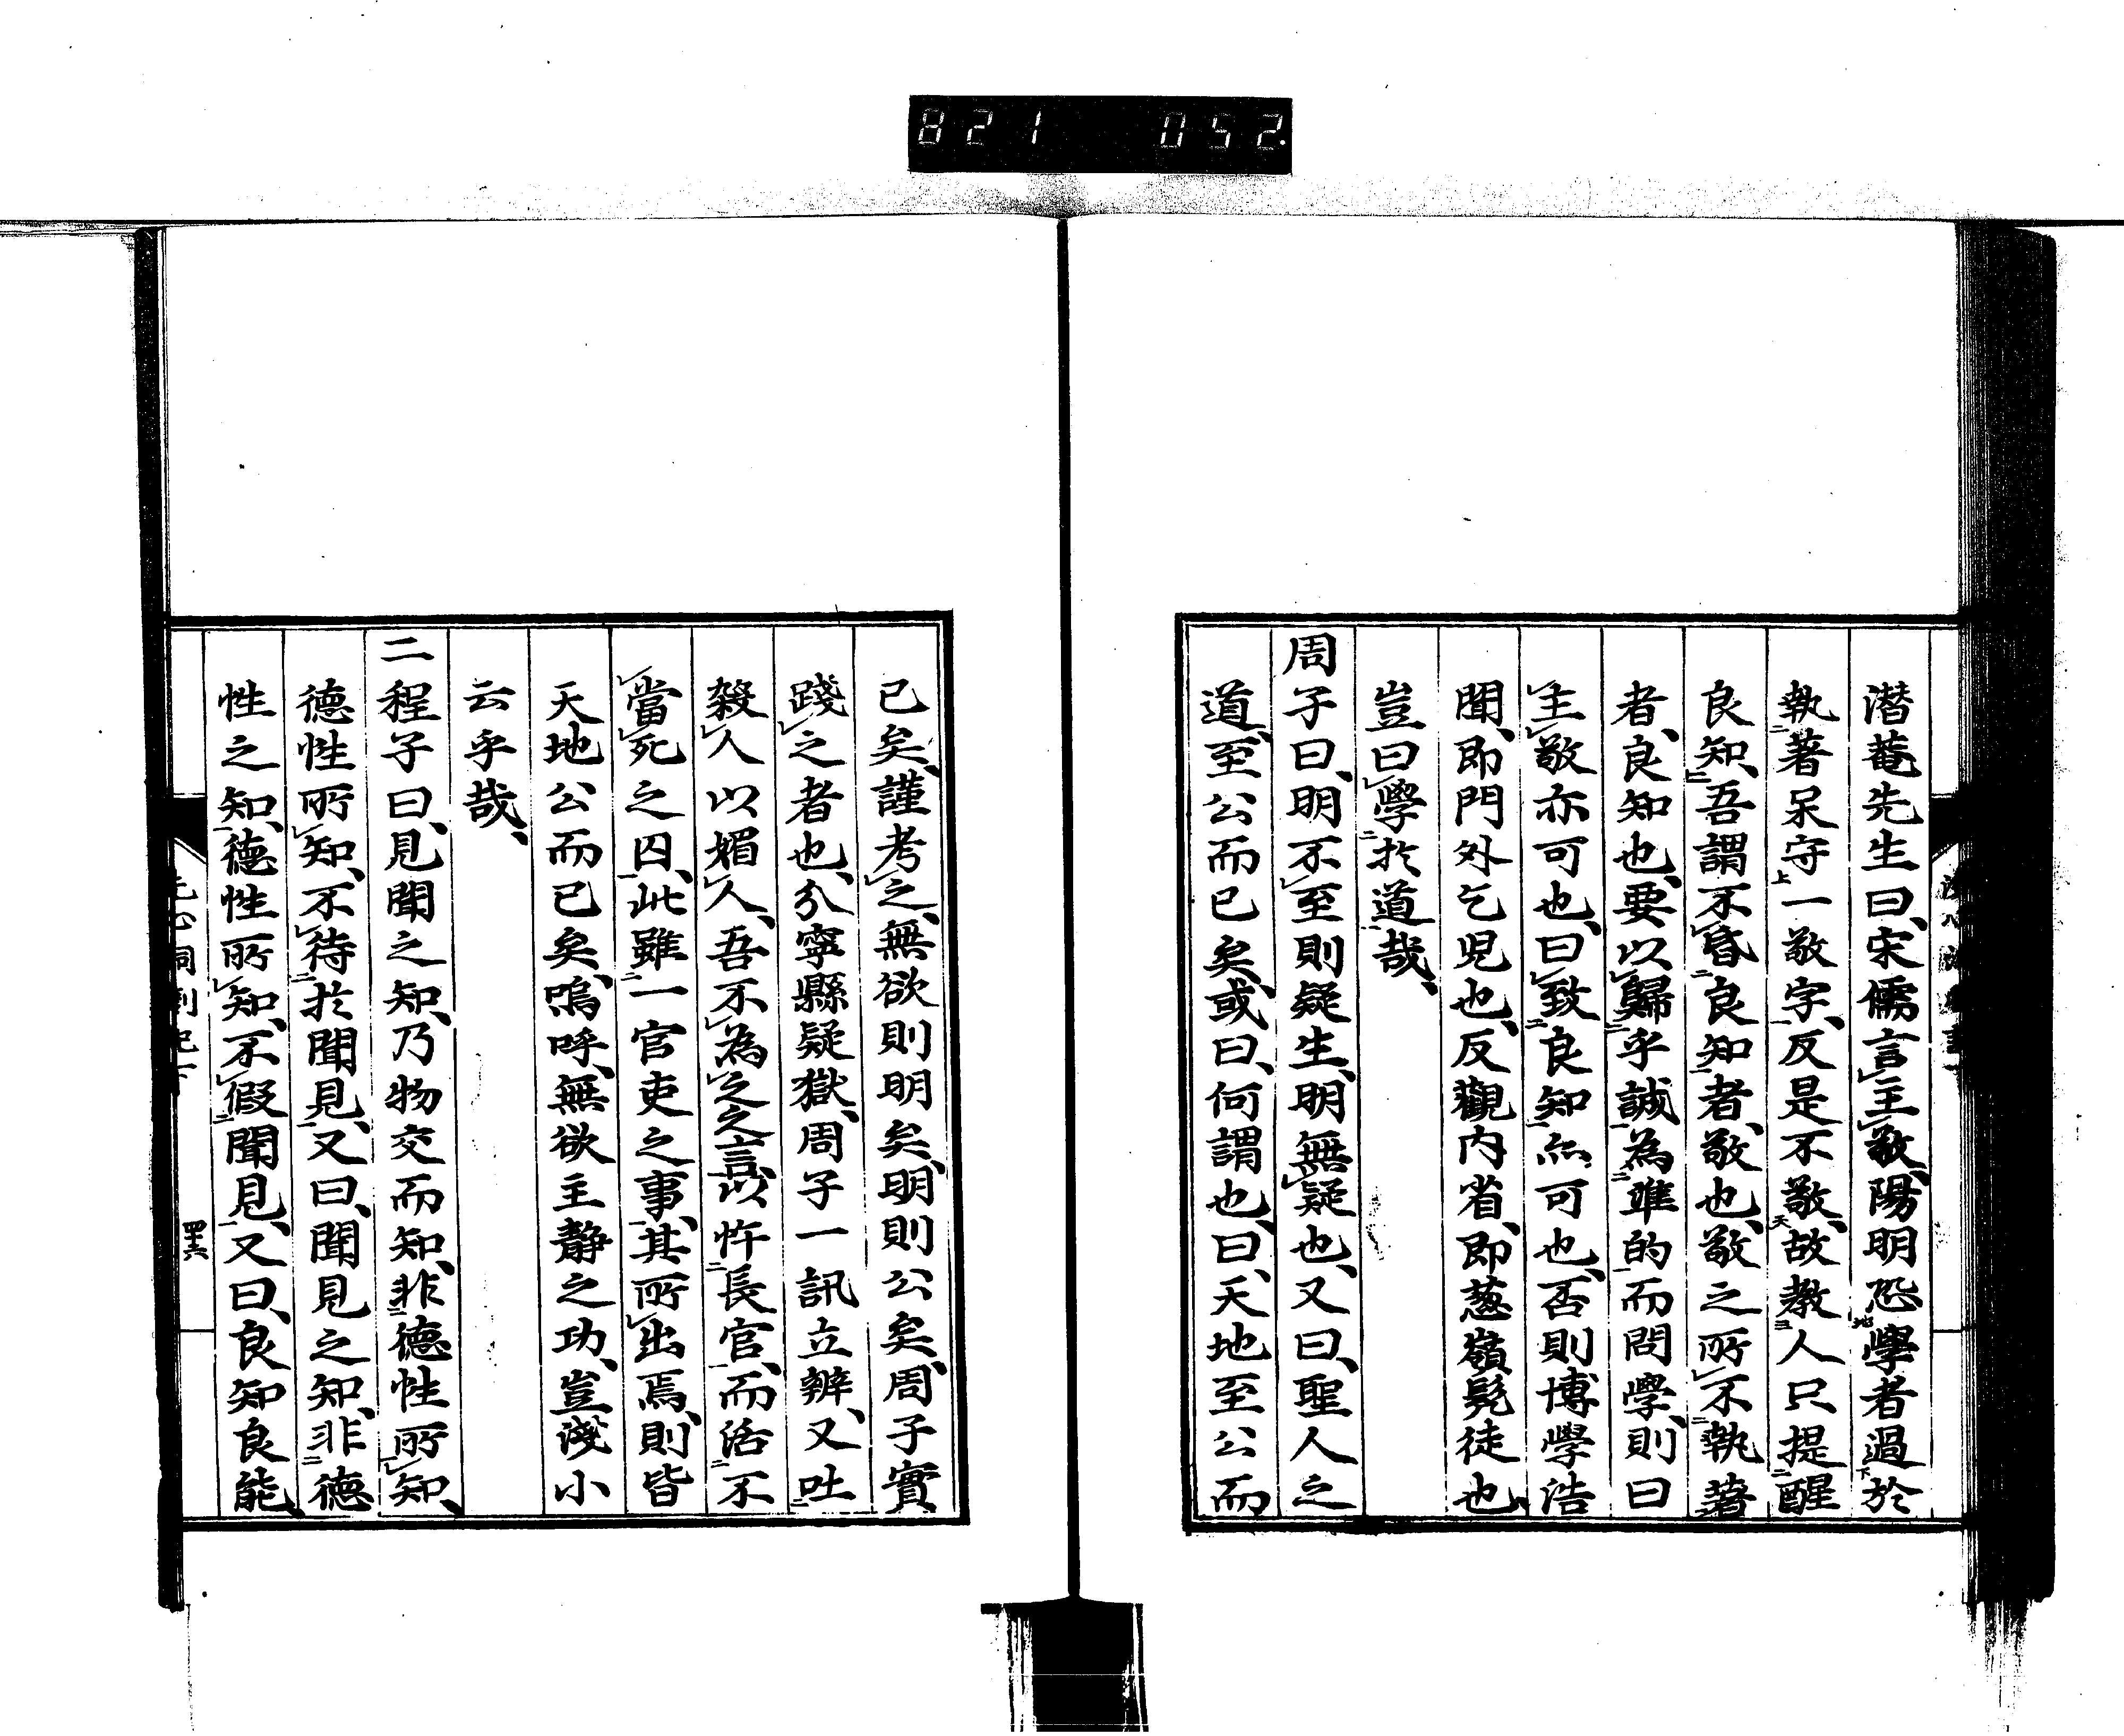 821 052.
潜菴先生曰、宋儒言主敬、陽明恐學者過於
執著呆守一敬字、反是不敬、故教人只提醒
良知、吾謂不昏良知者、敬也、敬之所不執著
者、良知也、要以歸乎誠為準的而問學、則曰
主敬亦可也、曰致良知亦可也、否則博學浩
聞、即門外乞児也、反觀内省、即葱嶺髡徒也、
豈曰學於道哉、
周子曰、明不至則疑生、明無疑也、又曰、聖人之
道、至公而已矣、或曰、何謂也、曰、天地至公而
已矣、謹考之、無欲則明矣、明則公矣、周子實
踐之者也、分寧縣疑獄、周子一訊立辨、又吐
殺人以媚人、吾不為之之言、以忤長官、而活不
當死之囚、此雖一官吏之事、其所出焉、則皆
天地公而已矣、嗚呼、無欲主靜之功、豈淺小
云乎哉、
二程子曰、見聞之知、乃物交而知、非德性所知、
德性所知、不待於聞見、又曰、聞見之知、非德
性之知、德性所知、不假聞見、又曰、良知良能、
四十六